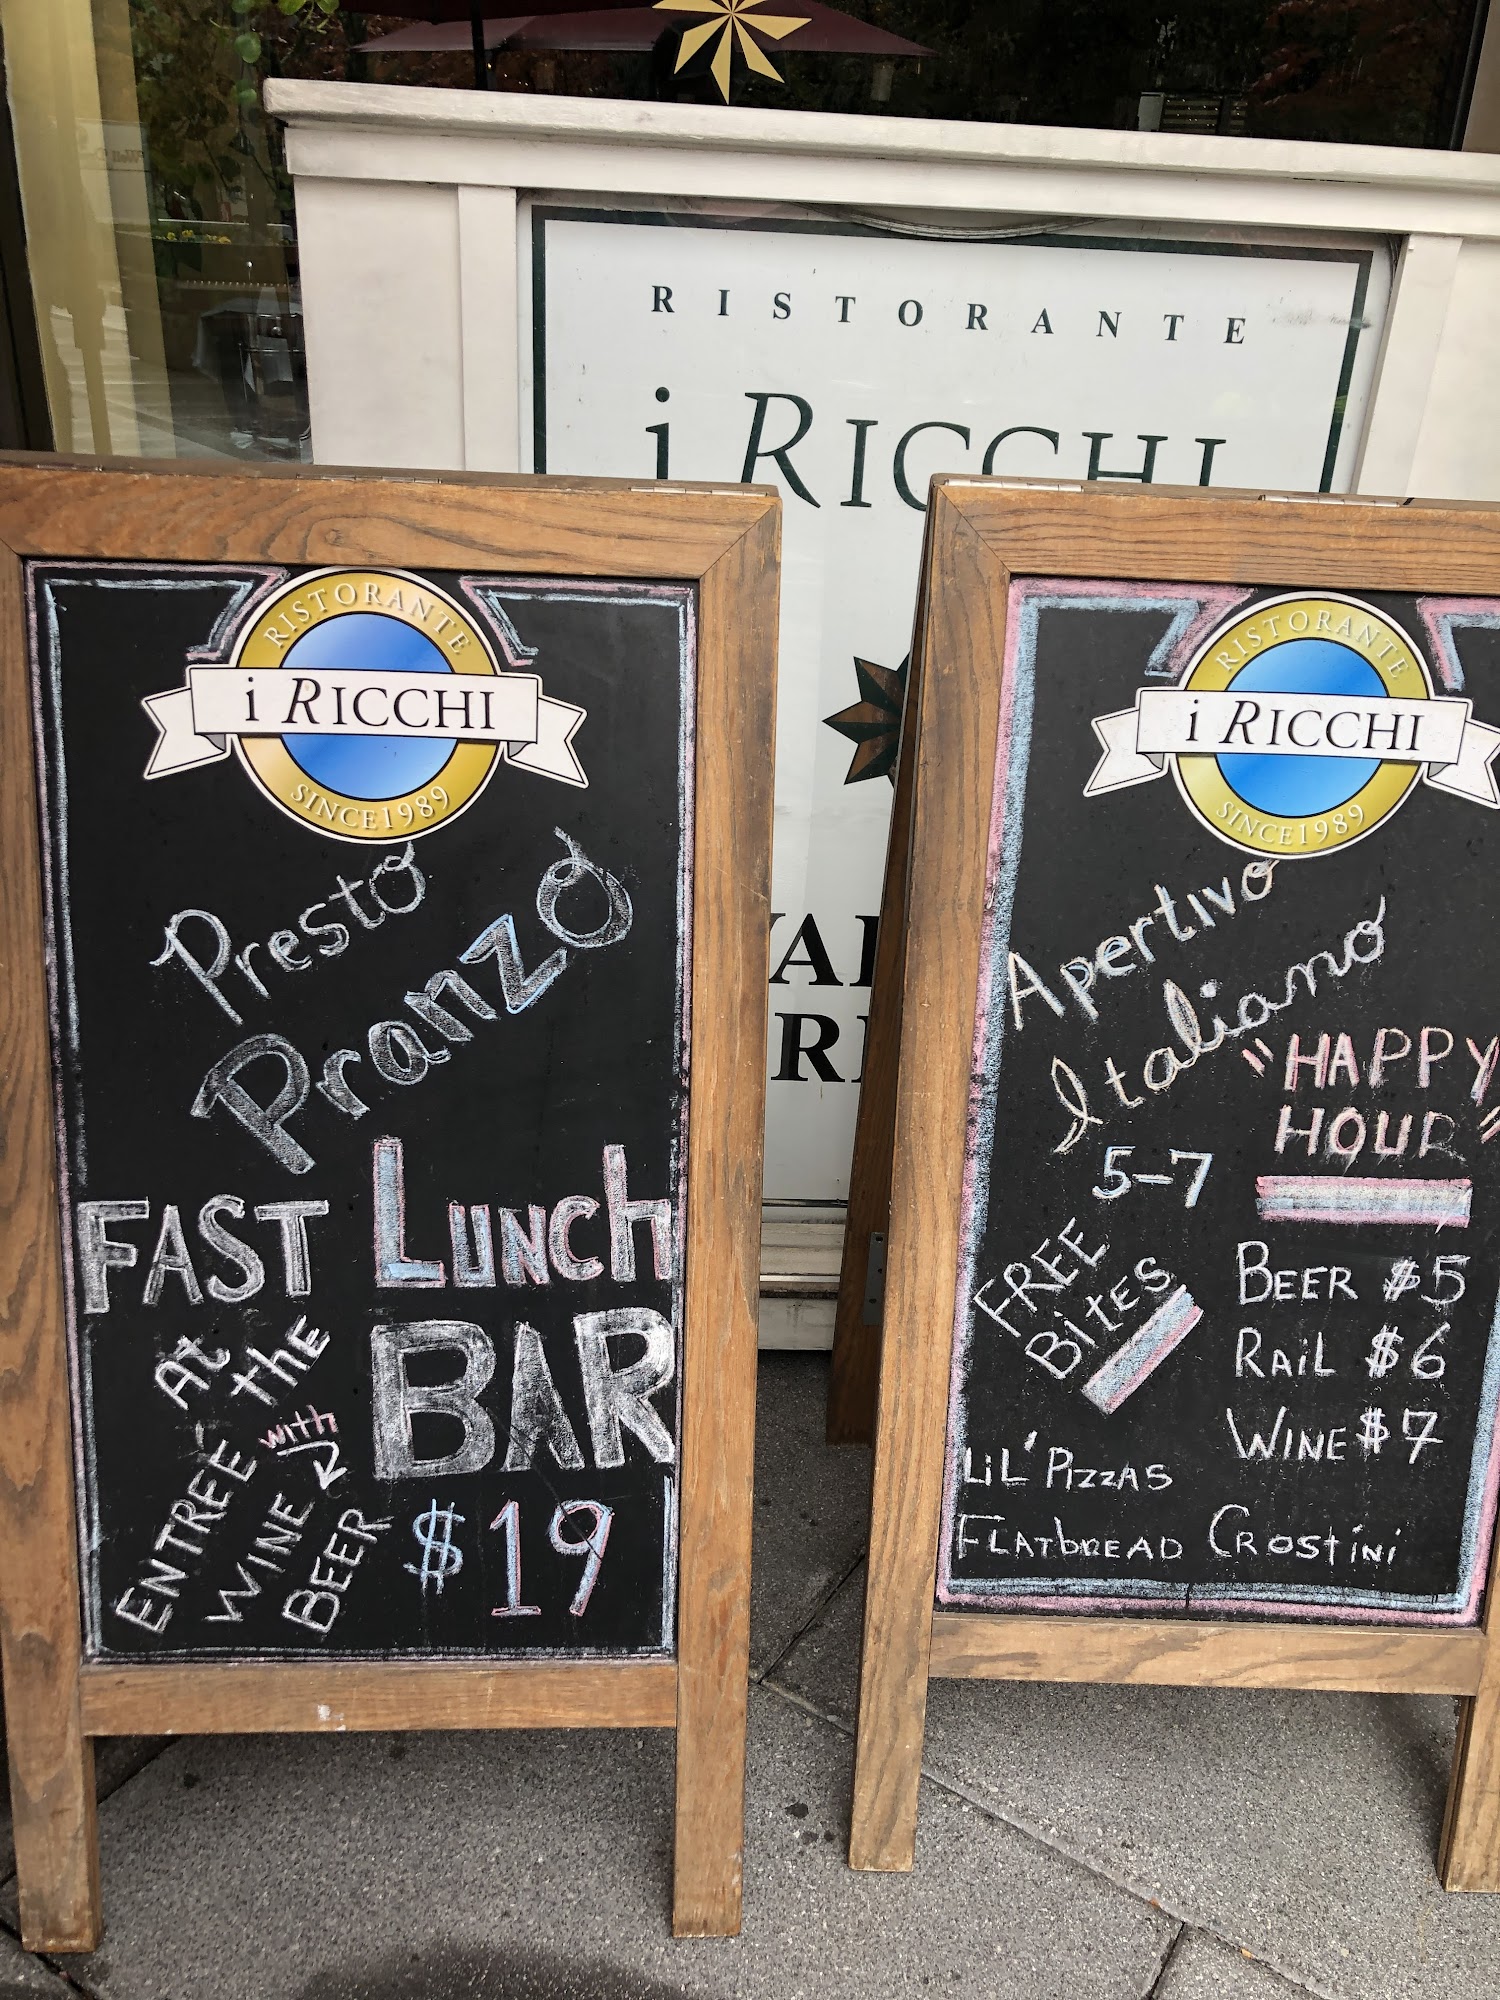 RISTORANTE
i RICCHI
RISTORANTE
i RICCHI
SINCE 1989
Presto
Pranzo
FAST LUNCH
At the BAR
ENTREE with
WINE
BEER
$19
RISTORANTE
i RICCHI
SINCE 1989
Apertivo
Italiano
"HAPPY
HOUR"
5-7
FREE
BitES
BEER $5
RAiL $6
WINE $7
LiL' PizzAS
FLAtbREAD CROStini